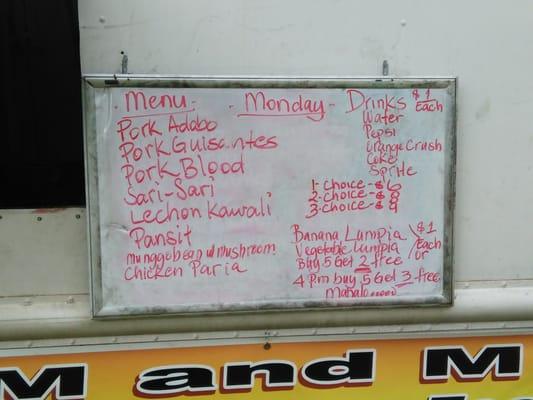 Menu - Monday -
Pork Adobo
Pork Guisantes
Pork Blood
Sari-Sari
Lechon Kawali
Pansit
munggo bean w/ mushroom
Chicken Paria
Drinks $1 Each
Water
Pepsi
Orange Crush
Coke
Sprite
1-Choice-$6
2-Choice-$8
3-Choice-$9
Banana Lumpia $1
Vegetable Lumpia Each
Buy 5 Get 2 free or
4 Pm buy 5 Get 3 free
Mahalo
M and M